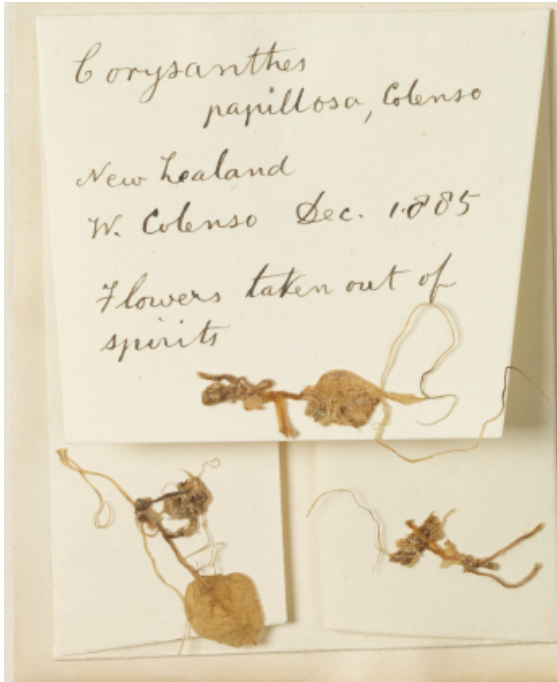 Corysanthes
papillosa, Colenso
New Zealand
W. Colenso Dec. 1885
Flowers taken out of
spirits